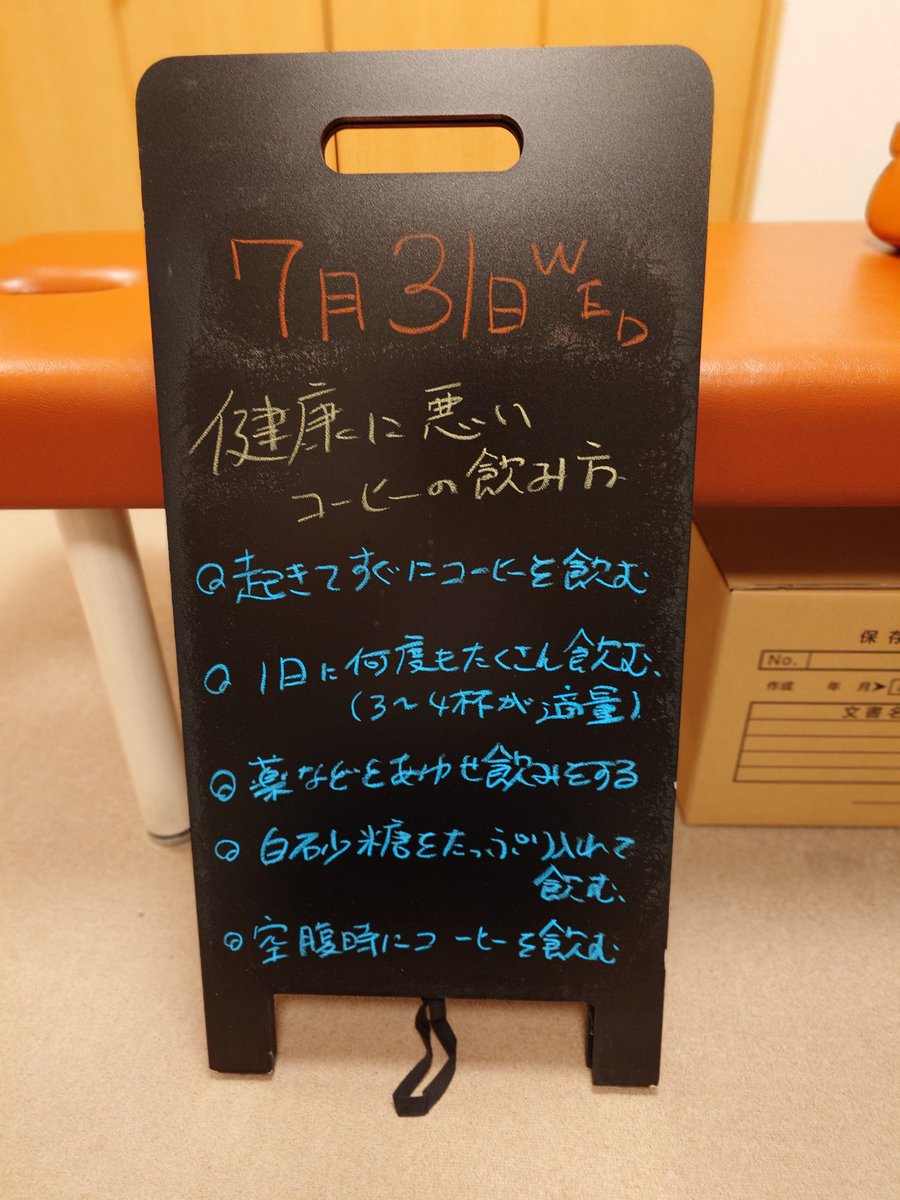 7月31日 WED
健康に悪い
コーヒーの飲み方
起きてすぐにコーヒーを飲む
1日に何度もたくさん飲む、
(3〜4杯が適量)
薬などをあわせ飲みをする
白砂糖をたっぷり入れて
飲む、
空腹時にコーヒーを飲む
保存
No.
作成 年 月
文書名